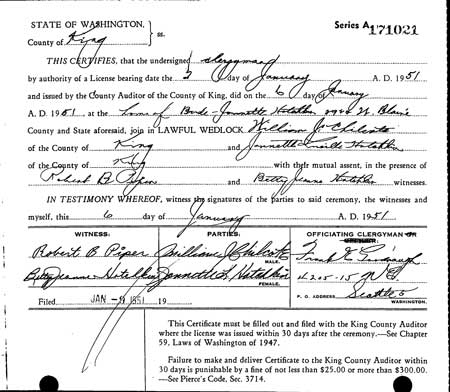 STATE OF WASHINGTON, ss. Series A 171021
County of King
THIS CERTIFIES, that the undersigned clergyman
by authority of a License bearing date the 2 day of January A. D. 1951
and issued by the County Auditor of the County of King, did on the 6 day of January
A. D. 1951 at the home of Bride - Jeannette Hotchkin W. Blaine
County and State aforesaid, join in LAWFUL WEDLOCK William J. Chilcote
of the County of King and Hotchkin
of the County of King with their mutual assent, in the presence of
Robert B. Piper and Betty Jeanne Hotchkin witnesses.
IN TESTIMONY WHEREOF, witness the signatures of the parties to said ceremony, the witnesses and
myself, this 6 day of January A. D. 1951
WITNESS: PARTIES: OFFICIATING CLERGYMAN
Robert B Piper William J Chilcote Frank E.
MALE.
Betty Jeanne Hotchkin Hotchkin 4205-15 N E.
FEMALE.
P. O. ADDRESS Seattle 5
WASHINGTON.
Filed JAN - 9 1951 19
This Certificate must be filled out and filed with the King County Auditor
where the license was issued within 30 days after the ceremony.—See Chapter
59, Laws of Washington of 1947.
Failure to make and deliver Certificate to the King County Auditor within
30 days is punishable by a fine of not less than $25.00 or more than $300.00.
—See Pierce's Code, Sec. 3714.